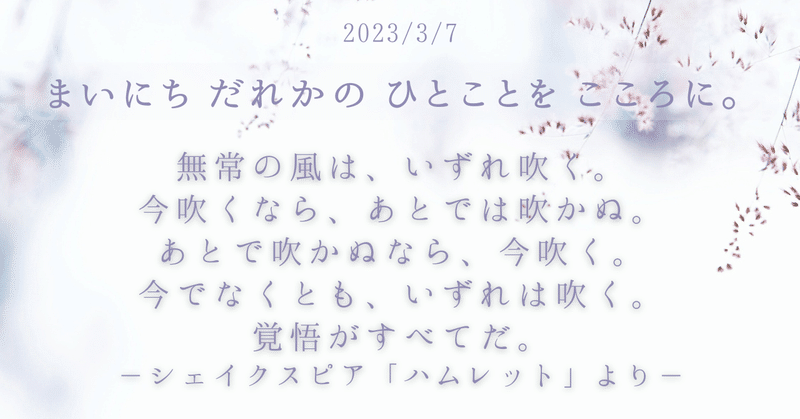 2023/3/7
まいにち だれかの ひとことを こころに。
無常の風は、いずれ吹く。
今吹くなら、あとでは吹かぬ。
あとで吹かぬなら、今吹く。
今でなくとも、いずれは吹く。
覚悟がすべてだ。
－シェイクスピア「ハムレット」より－